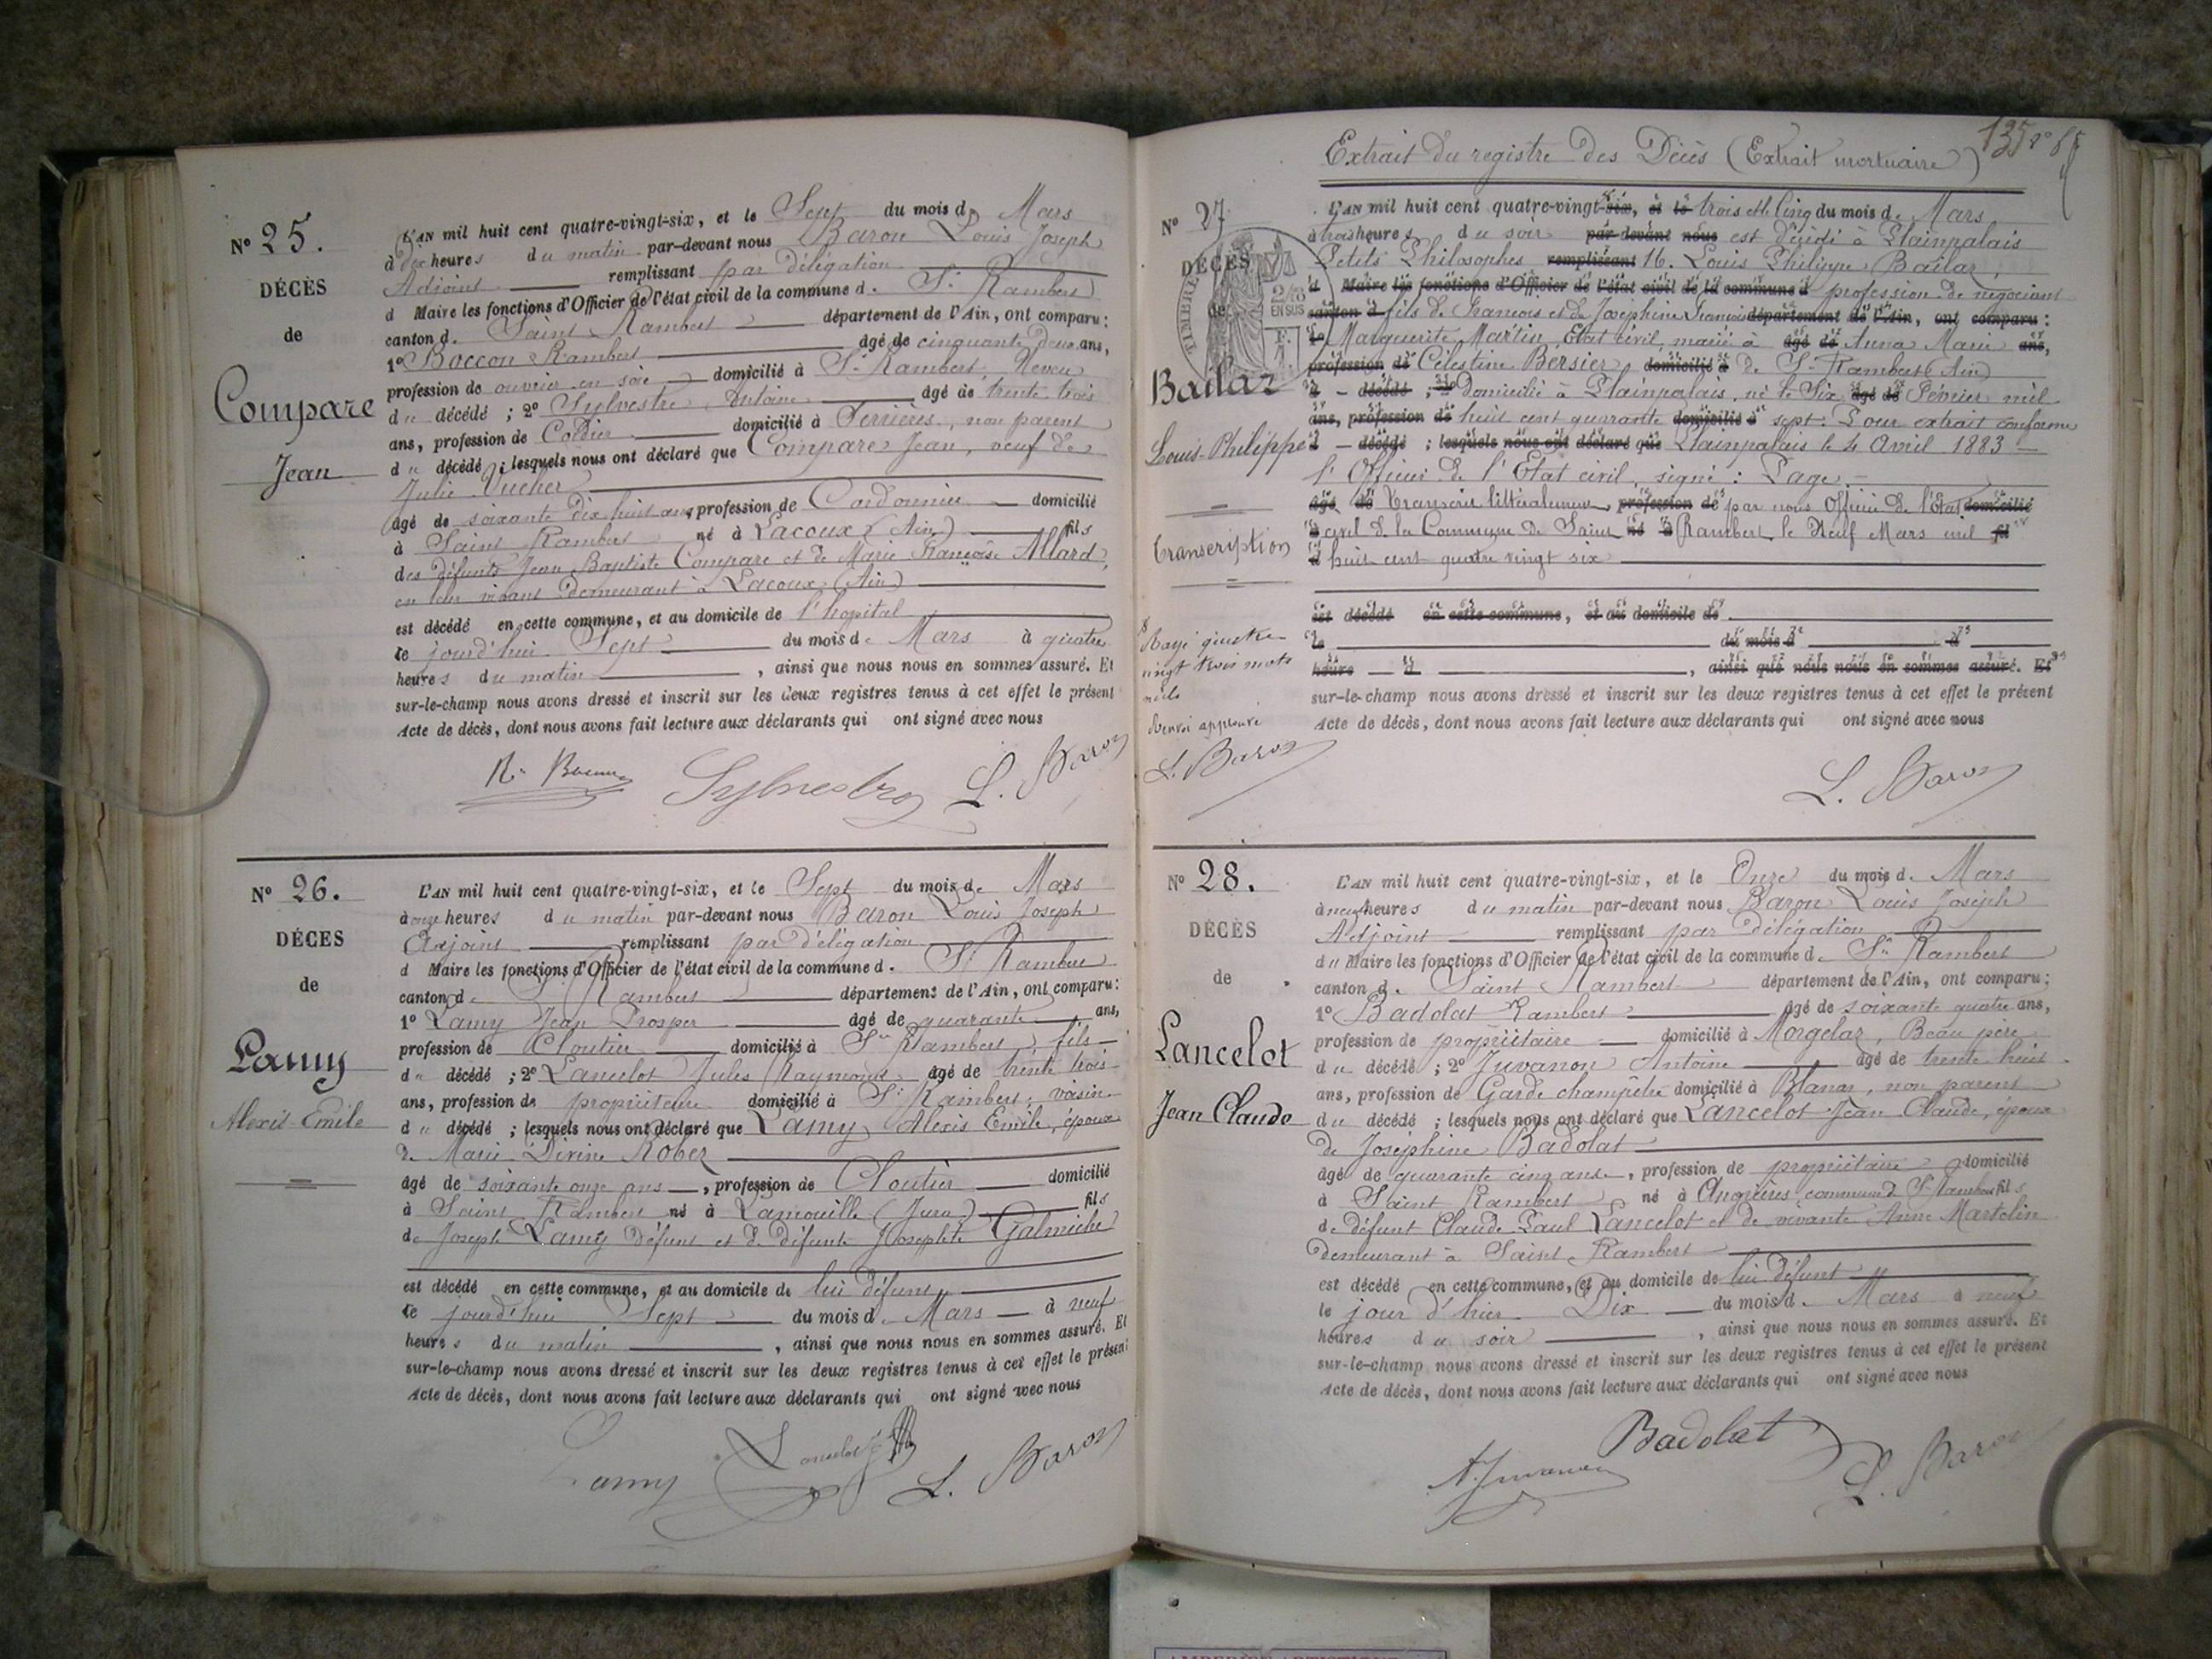 N° 25.
DÉCÈS
de
Compare
Jean
L'AN mil huit cent quatre-vingt-six, et le Sept du mois de Mars
à dix heures du matin par-devant nous Baron Louis Joseph
Adjoint remplissant par délégation
d Maire les fonctions d'Officier de l'état civil de la commune d. St Rambert
canton d. Saint Rambert département de l'Ain, ont comparu:
1° Boccon Rambert âgé de cinquante deux ans,
profession de ouvrier en soie domicilié à St Rambert, Neveu
du décédé ; 2° Sylvestre Antoine âgé de trente trois
ans, profession de Cordier domicilié à Serrières, non parent
du décédé ; lesquels nous ont déclaré que Compare Jean, veuf de
Julie Vucher
âgé de soixante dix huit ans, profession de Cordonnier domicilié
à Saint Rambert né à Lacoux (Ain) fils
des défunts Jean Baptiste Compare et de Marie Françoise Allard,
en leur vivant demeurant à Lacoux (Ain)
est décédé en cette commune, et au domicile de l'hopital
le jourd'hui Sept du mois de Mars à quatre
heures du matin, ainsi que nous nous en sommes assuré. Et
sur-le-champ nous avons dressé et inscrit sur les deux registres tenus à cet effet le présent
Acte de décès, dont nous avons fait lecture aux déclarants qui ont signé avec nous
Sylvestre L. Baron
N° 26.
DÉCES
de
Lamy
Alexis Emile
L'AN mil huit cent quatre-vingt-six, et le Sept du mois de Mars
à onze heures du matin par-devant nous Baron Louis Joseph
Adjoint remplissant par délégation
d Maire les fonctions d'Officier de l'état civil de la commune d. St Rambert
canton de St Rambert département de l'Ain, ont comparu:
1° Lamy Jean Prosper âgé de quarante ans,
profession de Cloutier domicilié à St Rambert, fils
du décédé ; 2° Lancelot Jules Raymond âgé de trente trois
ans, profession de propriétaire domicilié à St Rambert, voisin
du décédé ; lesquels nous ont déclaré que Lamy Alexis Emile, époux
de Marie Divine Rober
âgé de soixante onze ans, profession de Cloutier domicilié
à Saint Rambert né à Lamouille (Jura) fils
de Joseph Lamy défunt et de défunte Josephte Galmiche
est décédé en cette commune, et au domicile de lui défunt
le jourd'hui Sept du mois de Mars à neuf
heures du matin, ainsi que nous nous en sommes assuré. Et
sur-le-champ nous avons dressé et inscrit sur les deux registres tenus à cet effet le présent
Acte de décès, dont nous avons fait lecture aux déclarants qui ont signé avec nous
Lamy Lancelot L. Baron
135
Extrait du registre des Décès (Extrait mortuaire)
N° 27
DÉCÈS
de
TIMBRE
2/10
EN SUS
Bailar
Louis-Philippe
Transcription
Rayé quatre
vingt trois mots
nuls
Renvoi approuvé
L. Baron
L'AN mil huit cent quatre-vingt-six, et le trois et le Cinq du mois de Mars
à trois heures du soir par-devant nous est décédé à Plainpalais
Petits Philosophes remplissant 16. Louis Philippe Bailar,
d Maire les fonctions d'Officier de l'état civil de la commune d profession de négociant
canton d fils de François et de Joséphine Françoise département de l'Ain, ont comparu:
1° Marguerite Martin, Etat civil, marié à âgé de Anna Marie ans,
profession de Célestine Bersier domicilié à de St Rambert (Ain)
d décédé ; 2° domicilié à Plainpalais, né le Six âgé de Février mil
ans, profession de huit cent quarante domicilié à sept. Pour extrait conforme
d décédé ; lesquels nous ont déclaré que Plainpalais le 4 Avril 1883
l'Officier de l'Etat civil, signé: Page.
âgé de Transcrit littéralement profession de par nous Officier de l'Etat domicilié
à civil de la Commune de Saint né à Rambert le Neuf Mars mil fil
d huit cent quatre vingt six
est décédé en cette commune, et au domicile de
le du mois d à
heure d, ainsi que nous nous en sommes assuré. Et
sur-le-champ nous avons dressé et inscrit sur les deux registres tenus à cet effet le présent
Acte de décès, dont nous avons fait lecture aux déclarants qui ont signé avec nous
L. Baron
N° 28.
DÉCÈS
de
Lancelot
Jean Claude
L'AN mil huit cent quatre-vingt-six, et le Onze du mois de Mars
à neuf heures du matin par-devant nous Baron Louis Joseph
Adjoint remplissant par délégation
du Maire les fonctions d'Officier de l'état civil de la commune d. St Rambert
canton d. Saint Rambert département de l'Ain, ont comparu:
1° Badolat Rambert âgé de soixante quatre ans,
profession de propriétaire domicilié à Morgelas, Beau père
du décédé ; 2° Juvanon Antoine âgé de trente huit
ans, profession de Garde champêtre domicilié à Blanas, non parent
du décédé ; lesquels nous ont déclaré que Lancelot Jean Claude, époux
de Joséphine Badolat
âgé de quarante cinq ans, profession de propriétaire domicilié
à Saint Rambert né à Angrières, commune de St Rambert fils
de défunt Claude Paul Lancelot et de vivante Anne Martelin
demeurant à Saint Rambert
est décédé en cette commune, et au domicile de lui défunt
le jour d'hier Dix du mois d. Mars à neuf
heures du soir, ainsi que nous nous en sommes assuré. Et
sur-le-champ nous avons dressé et inscrit sur les deux registres tenus à cet effet le présent
Acte de décès, dont nous avons fait lecture aux déclarants qui ont signé avec nous
A. Juvanon Badolat L. Baron